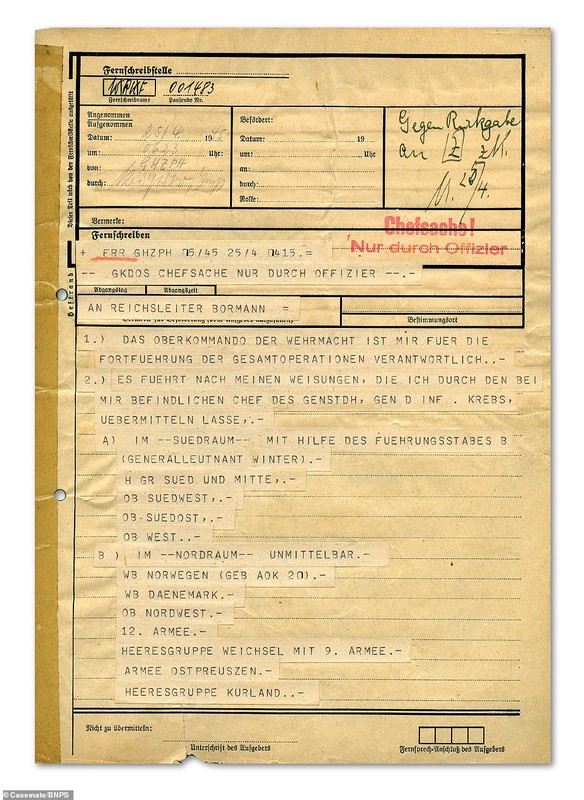 Fernschreibstelle
001483
Fernschreibname Laufende Nr.
Angenommen
Aufgenommen
Datum: 25/4 19 45
um: Uhr:
von:
durch:
Befördert:
Datum: 19
um: Uhr
an:
durch:
Rolle:
Gegen Rückgabe
an Z
25/4.
Dieser Teil wird von der Fernschreibstelle ausgefüllt
Vermerke:
Chefsache!
Nur durch Offizier
Fernschreiben
+ FRR GHZPH 05/45 25/4 0415.=
-- GKDOS CHEFSACHE NUR DURCH OFFIZIER --.-
Abgangstag Abgangszeit
AN REICHSLEITER BORMANN =.
Bestimmungsort
1.) DAS OBERKOMMANDO DER WEHRMACHT IST MIR FUER DIE
FORTFUEHRUNG DER GESAMTOPERATIONEN VERANTWORTLICH..-
2.) ES FUEHRT NACH MEINEN WEISUNGEN, DIE ICH DURCH DEN BEI
MIR BEFINDLICHEN CHEF DES GENSTDH, GEN D INF . KREBS,
UEBERMITTELN LASSE,.-
A) IM --SUEDRAUM-- MIT HILFE DES FUEHRUNGSSTABES B
(GENERALLEUTNANT WINTER).-
H GR SUED UND MITTE,.-
OB SUEDWEST,.-
OB-SUEDOST,.-
OB WEST..-
B ) IM --NORDRAUM-- UNMITTELBAR.-
WB NORWEGEN (GEB AOK 20).-
WB DAENEMARK.-
OB NORDWEST.-
12. ARMEE.-
HEERESGRUPPE WEICHSEL MIT 9. ARMEE.-
ARMEE OSTPREUSZEN.-
HEERESGRUPPE KURLAND..-
Nicht zu übermitteln:
Unterschrift des Aufgebers
Fernsprech-Anschluß des Aufgebers
© Casemate/BNPS